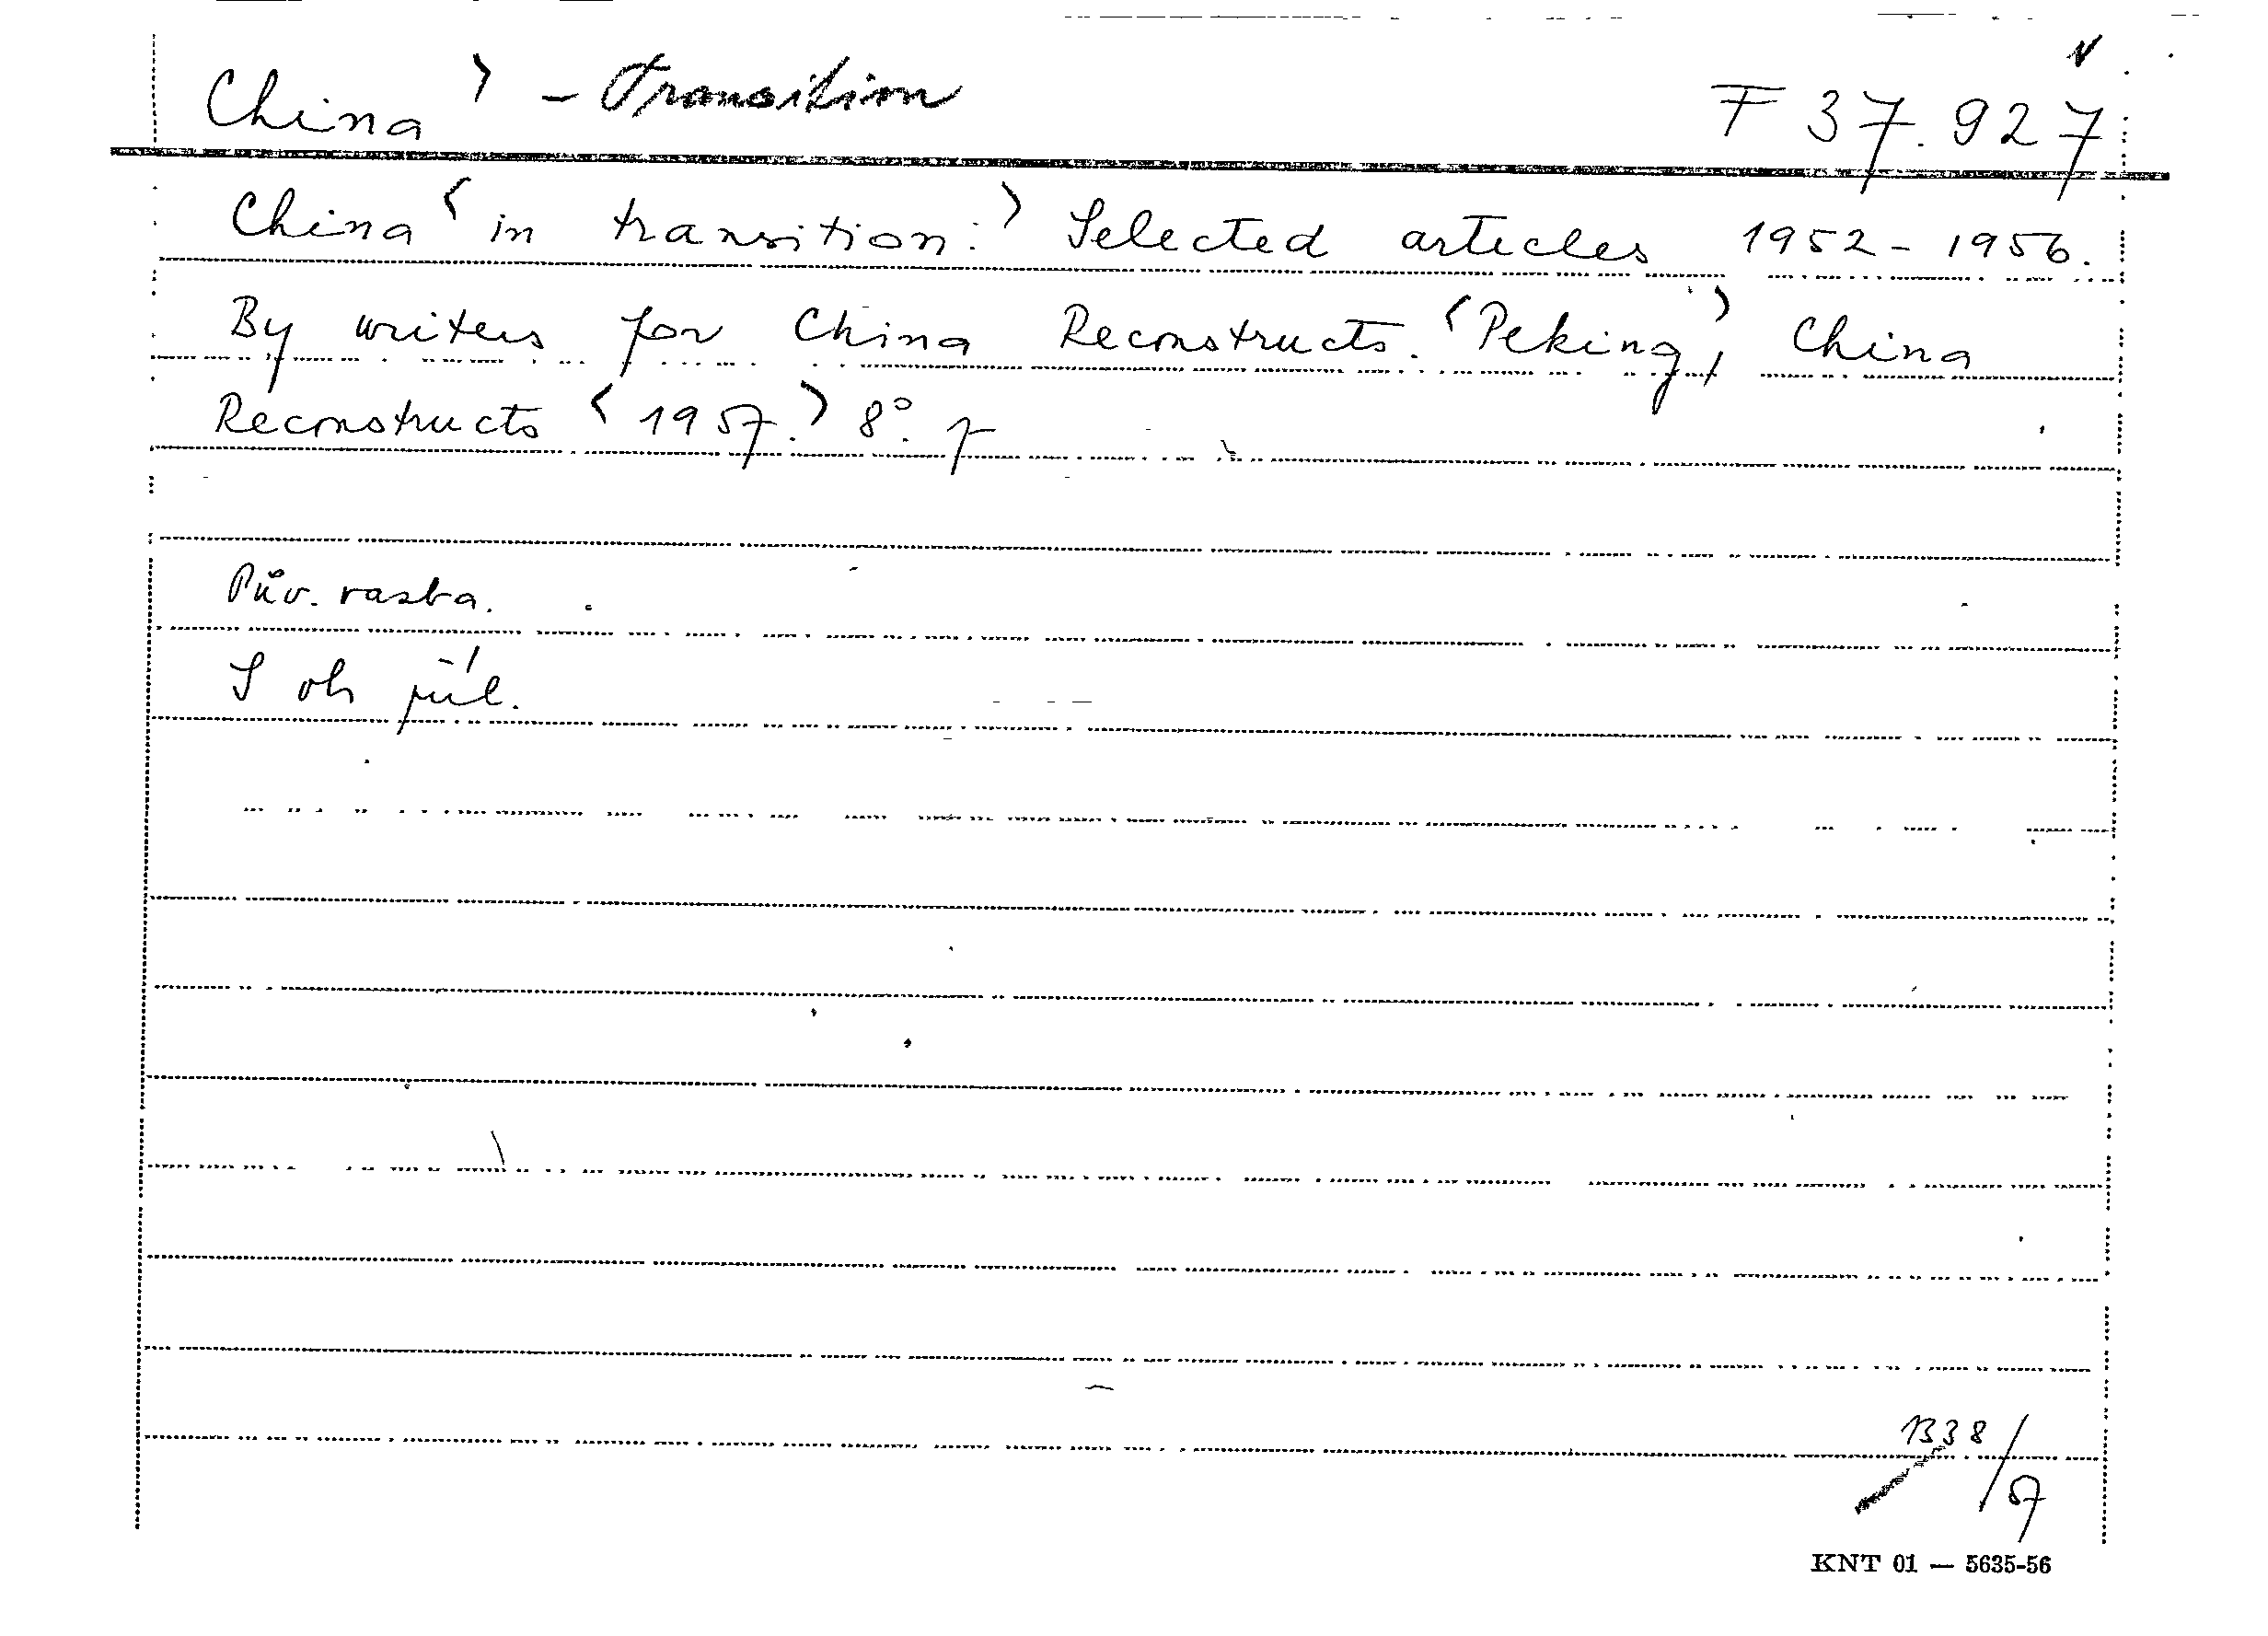 China > - Transition F 37.927
China < in transition: > Selected articles 1952-1956.
By writers for China Reconstructs. < Peking, > China
Reconstructs < 1957. > 8°.
Pův. vazba.
S ob příl.
1338/57
KNT 01 — 5635-56